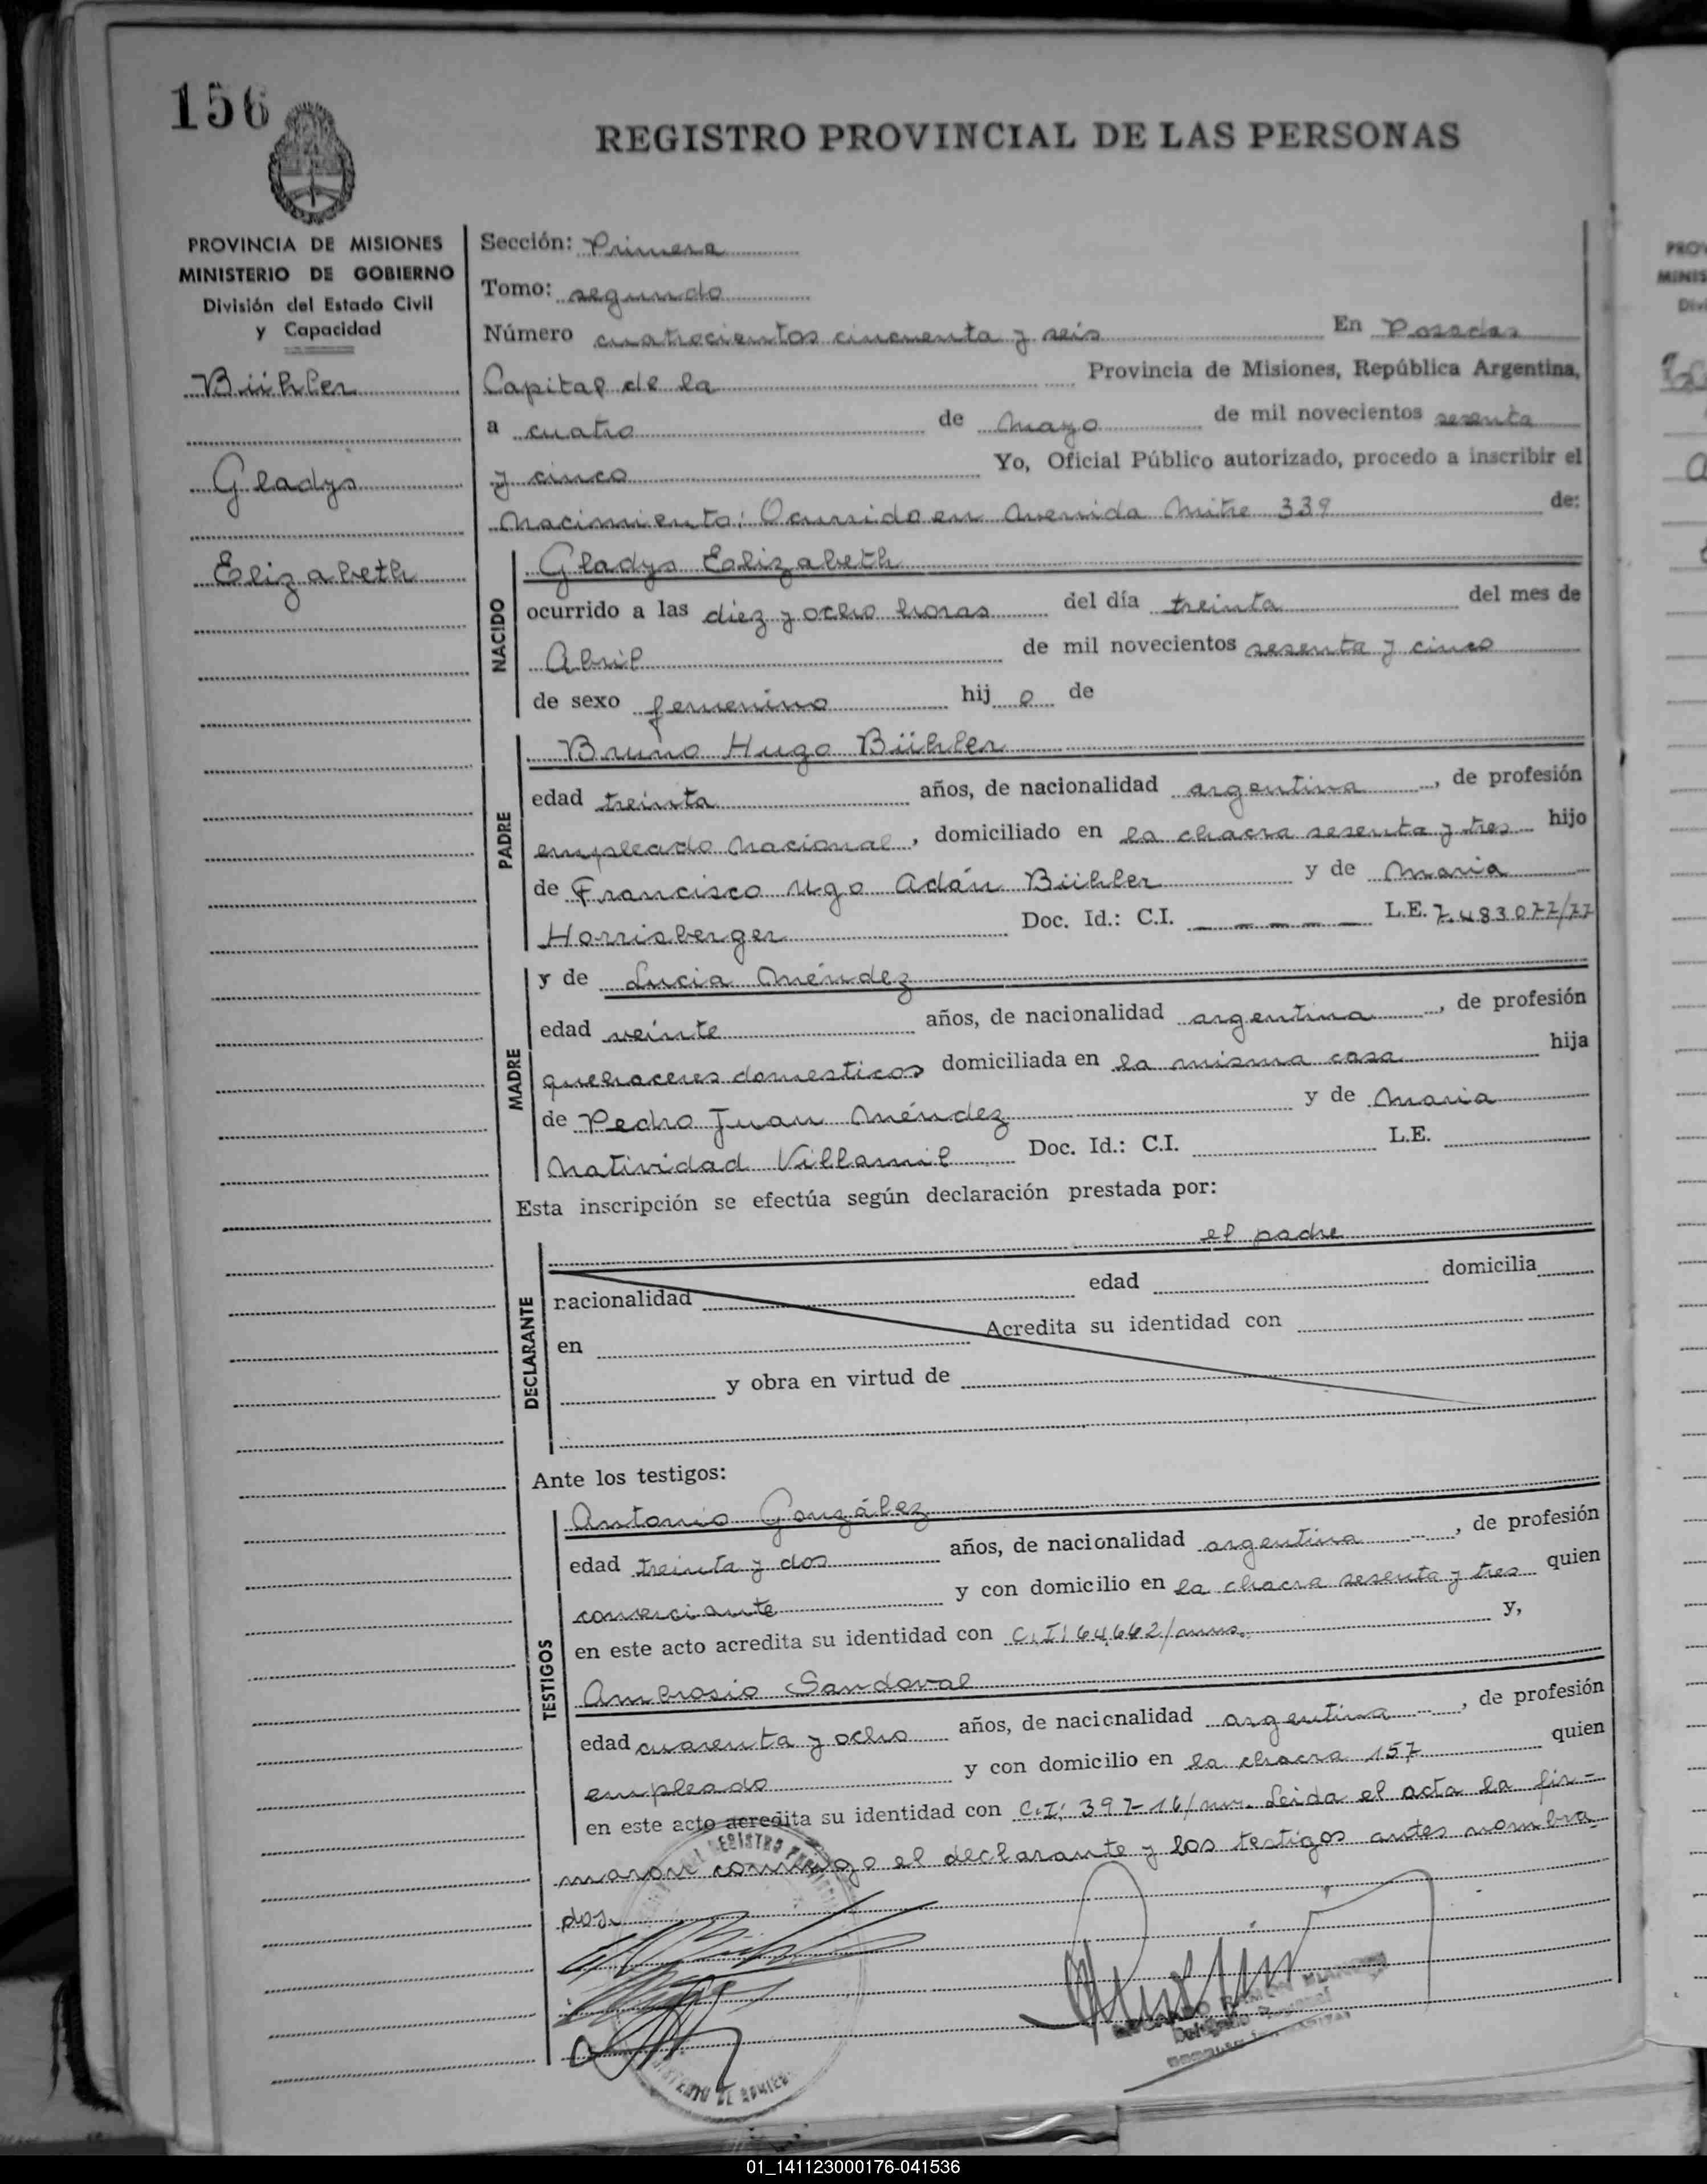 156
REGISTRO PROVINCIAL DE LAS PERSONAS
PROVINCIA DE MISIONES
MINISTERIO DE GOBIERNO
División del Estado Civil
y Capacidad
Bühler
Gladys
Elizabeth
Sección: Primera
Tomo: segundo
Número cuatrocientos cincuenta y seis En Posadas
Capital de la Provincia de Misiones, República Argentina,
a cuatro de Mayo de mil novecientos sesenta
y cinco Yo, Oficial Público autorizado, procedo a inscribir el
Nacimiento: Ocurrido en Avenida Mitre 339 de:
NACIDO
Gladys Elizabeth
ocurrido a las diez y ocho horas del día treinta del mes de
Abril de mil novecientos sesenta y cinco
de sexo femenino hij a de
PADRE
Bruno Hugo Bühler
edad treinta años, de nacionalidad argentina, de profesión
empleado Nacional, domiciliado en la chacra sesenta y tres hijo
de Francisco Ugo Adán Bühler y de Maria
Horrisberger Doc. Id.: C.I. — — — — L.E. 7.483.077/77
MADRE
y de Lucia Méndez
edad veinte años, de nacionalidad argentina, de profesión
quehaceres domesticos domiciliada en la misma casa hija
de Pedro Juan Méndez y de Maria
Natividad Villamil Doc. Id.: C.I. L.E.
Esta inscripción se efectúa según declaración prestada por:
el padre
DECLARANTE
nacionalidad edad domicilia
en Acredita su identidad con
y obra en virtud de
Ante los testigos:
TESTIGOS
Antonio González
edad treinta y dos años, de nacionalidad argentina, de profesión
comerciante y con domicilio en la chacra sesenta y tres quien
en este acto acredita su identidad con C.I. 64.662/mnes. y,
Ambrosio Sandoval
edad cuarenta y ocho años, de nacionalidad argentina, de profesión
empleado y con domicilio en la chacra 157 quien
en este acto acredita su identidad con C.I. 397-16/mns. Leida el acta la fir-
maron conmigo el declarante y los testigos antes nombra-
dos.
01_141123000176-041536